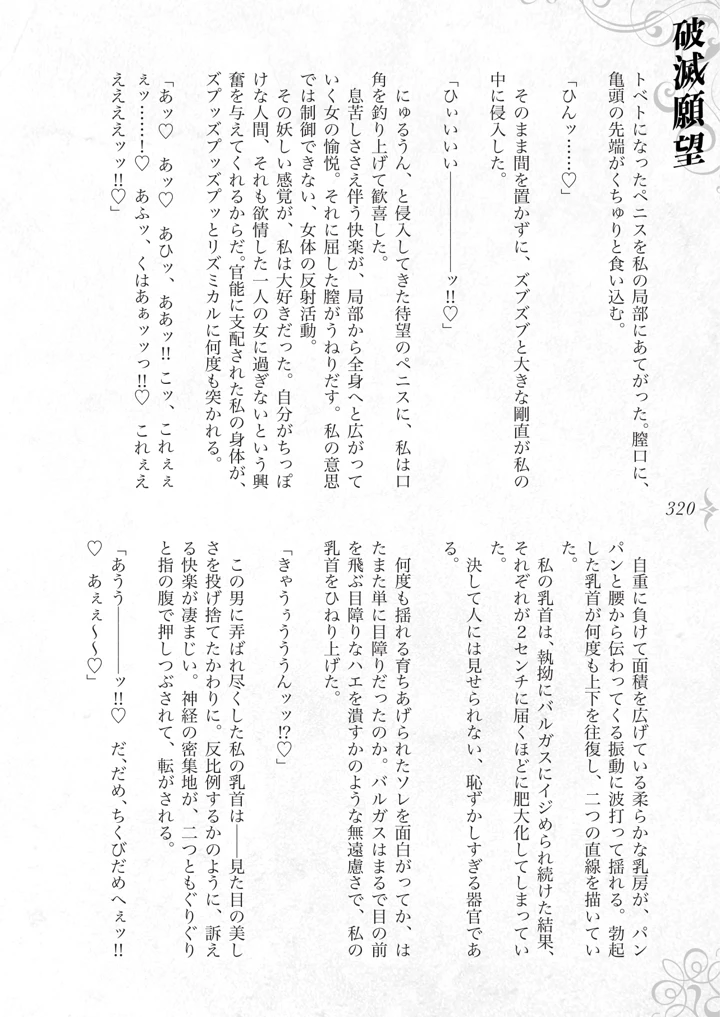 破滅願望
トベトになったペニスを私の局部にあてがった。膣口に、
亀頭の先端がくちゅりと食い込む。
「ひんッ……♡」
そのまま間を置かずに、ズブズブと大きな剛直が私の
中に侵入した。
「ひぃいいい――――ッ!!♡」
にゅるうん、と侵入してきた待望のペニスに、私は口
角を釣り上げて歓喜した。
息苦しささえ伴う快楽が、局部から全身へと広がって
いく女の愉悦。それに屈した膣がうねりだす。私の意思
では制御できない、女体の反射活動。
その妖しい感覚が、私は大好きだった。自分がちっぽ
けな人間、それも欲情した一人の女に過ぎないという興
奮を与えてくれるからだ。官能に支配された私の身体が、
ズプッズプッズプッとリズミカルに何度も突かれる。
「あッ♡　あッ♡　あひッ、ああッ!! こッ、これぇぇ
ぇッ……!♡　あふッ、くはあぁッッっ!!♡　これぇえ
ええええッッ!!♡」
320
自重に負けて面積を広げている柔らかな乳房が、パン
パンと腰から伝わってくる振動に波打って揺れる。勃起
した乳首が何度も上下を往復し、二つの直線を描いてい
た。
私の乳首は、執拗にバルガスにイジめられ続けた結果、
それぞれが２センチに届くほどに肥大化してしまってい
た。
決して人には見せられない、恥ずかしすぎる器官であ
る。
何度も揺れる育ちあげられたソレを面白がってか、は
たまた単に目障りだったのか。バルガスはまるで目の前
を飛ぶ目障りなハエを潰すかのような無遠慮さで、私の
乳首をひねり上げた。
「きゃうぅうううんッッ!?♡」
この男に弄ばれ尽くした私の乳首は――見た目の美し
さを投げ捨てたかわりに。反比例するかのように、訴え
る快楽が凄まじい。神経の密集地が、二つともぐりぐり
と指の腹で押しつぶされて、転がされる。
「あうう――――ッ!!♡　だ、だめ、ちくびだめへぇッ!!
♡　あぇぇ〜〜♡」